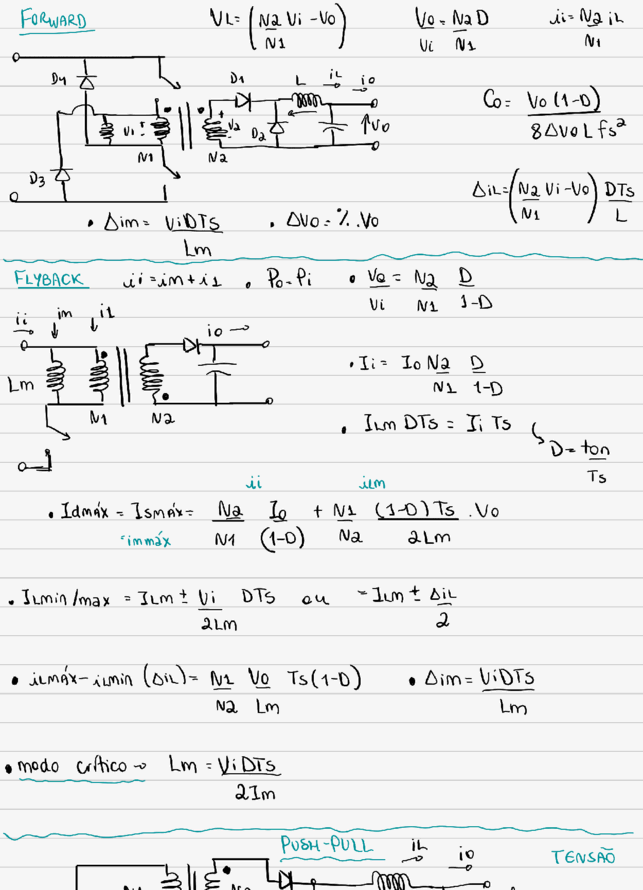 FORWARD
VL = (N2/N1 Vi - Vo)
Vo/Vi = N2/N1 D
ii = N2/N1 iL
D4
D1 L iL io
Co = Vo (1-D) / 8ΔVo L fs²
V1 + - + V2 - D2 ↑Vo
D3 N1 N2
ΔiL = (N2/N1 Vi - Vo) DTs/L
• Δim = ViDTs/Lm • ΔVo = %.Vo
FLYBACK ii = im + i1 • Po = Pi • Vo/Vi = N2/N1 D/1-D
ii im i1 io →
Lm N1 N2
• Ii = Io N2/N1 D/1-D
• ILm DTs = Ii Ts
D = ton/Ts
ii iLm
• Idmáx = Ismáx = N2/N1 Io/(1-D) + N1/N2 (1-D)Ts/2Lm . Vo
= immáx
• ILmin/max = ILm ± Vi/2Lm DTs ou = ILm ± ΔiL/2
• iLmáx - iLmin (ΔiL) = N1/N2 Vo/Lm Ts(1-D) • Δim = ViDTs/Lm
• modo crítico → Lm = ViDTs/2Im
PUSH-PULL iL io TENSÃO